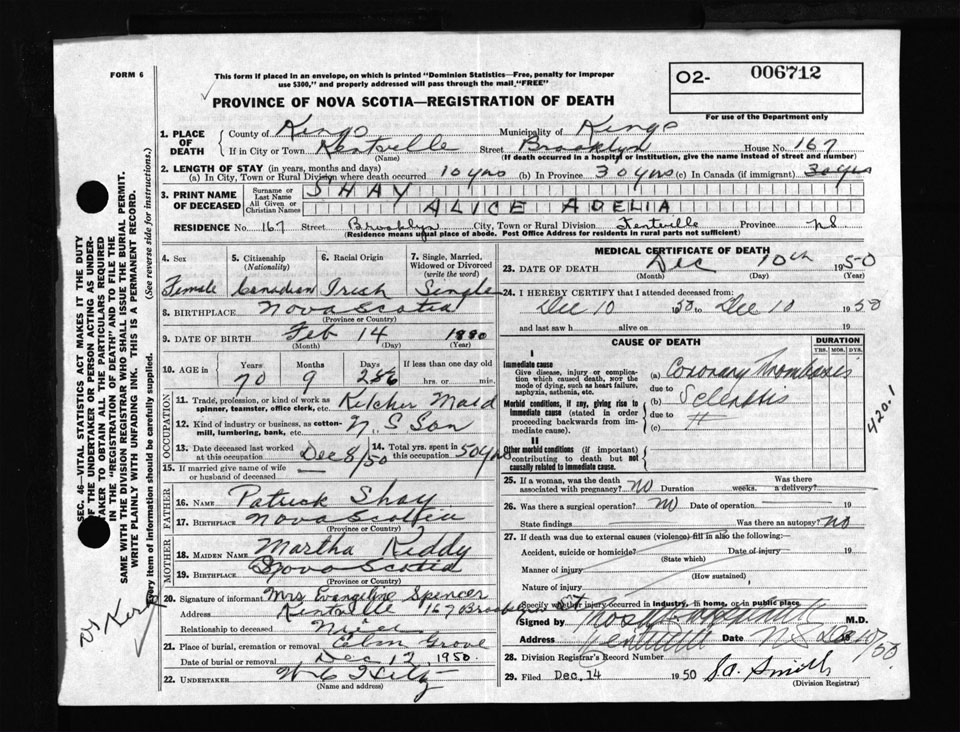 FORM 6
This form if placed in an envelope, on which is printed "Dominion Statistics—Free, penalty for improper
use $300," and properly addressed will pass through the mail "FREE"
O2- 006712
For use of the Department only
PROVINCE OF NOVA SCOTIA—REGISTRATION OF DEATH
1. PLACE OF DEATH
County of Kings Municipality of Kings
If in City or Town Kentville Street Brooklyn House No. 167
(Name) (If death occurred in a hospital or institution, give the name instead of street and number)
2. LENGTH OF STAY (in years, months and days)
(a) In City, Town or Rural Division where death occurred 10 yrs (b) In Province 30 yrs (c) In Canada (if immigrant) 30 yrs
3. PRINT NAME OF DECEASED
Surname or Last Name SHAY
All Given or Christian Names ALICE ADELIA
RESIDENCE No. 167 Street Brooklyn City, Town or Rural Division Kentville Province NS
(Residence means usual place of abode. Post Office Address for residents in rural parts not sufficient)
4. Sex
Female
5. Citizenship
(Nationality)
Canadian
6. Racial Origin
Irish
7. Single, Married,
Widowed or Divorced
(write the word)
Single
8. BIRTHPLACE Nova Scotia
(Province or Country)
9. DATE OF BIRTH Feb 14 1880
(Month) (Day) (Year)
10. AGE in
Years Months Days If less than one day old
70 9 hrs. or min.
OCCUPATION
11. Trade, profession or kind of work as
spinner, teamster, office clerk, etc. Kitchen Maid
12. Kind of industry or business, as cotton-
mill, lumbering, bank, etc. N.S San
13. Date deceased last worked
at this occupation Dec 8/50
14. Total yrs. spent in
this occupation 50 yrs
15. If married give name of wife
or husband of deceased —
FATHER
16. NAME Patrick Shay
17. BIRTHPLACE Nova Scotia
(Province or Country)
MOTHER
18. MAIDEN NAME Martha Kiddy
19. BIRTHPLACE Nova Scotia
(Province or Country)
20. Signature of informant Mrs Evangeline Spencer
Address Kentville 167 Brooklyn St
Relationship to deceased Niece
21. Place of burial, cremation or removal Elm Grove
Date of burial or removal Dec 12, 1950.
22. UNDERTAKER
(Name and address)
MEDICAL CERTIFICATE OF DEATH
23. DATE OF DEATH Dec 10th 1950
(Month) (Day) (Year)
24. I HEREBY CERTIFY that I attended deceased from:
Dec 10 1950 to Dec 10 1950
and last saw h alive on 19
CAUSE OF DEATH
DURATION
YRS. MOS. DYS.
I
Immediate cause
Give disease, injury or complication which caused death, NOT the mode of dying, such as heart failure, asphyxia, asthenia, etc.
(a) Coronary Thrombosis
due to
Morbid conditions, if any, giving rise to immediate cause (stated in order proceeding backwards from immediate cause).
(b)
due to
(c)
420.1
II
Other morbid conditions (if important) contributing to death but not causally related to immediate cause.
25. If a woman, was the death
associated with pregnancy? NO Duration weeks. Was there a delivery?
26. Was there a surgical operation? NO Date of operation 19
State findings Was there an autopsy? no
27. If death was due to external causes (violence) fill in also the following:—
Accident, suicide or homicide? Date of injury 19
(State which)
Manner of injury
(How sustained)
Nature of injury
Specify whether injury occurred in industry, in home, or in public place.
Signed by M.D.
Address Kentville NS Date Dec 10/50
28. Division Registrar's Record Number
29. Filed Dec. 14 1950 Smith
(Division Registrar)
SEC. 46—VITAL STATISTICS ACT MAKES IT THE DUTY
OF THE UNDERTAKER OR PERSON ACTING AS UNDER-
TAKER TO OBTAIN ALL THE PARTICULARS REQUIRED
IN THE "REGISTRATION OF DEATH" AND TO FILE THE
SAME WITH THE DIVISION REGISTRAR WHO SHALL ISSUE THE BURIAL PERMIT.
WRITE PLAINLY WITH UNFADING INK. THIS IS A PERMANENT RECORD.
Every item of information should be carefully supplied. (See reverse side for instructions.)